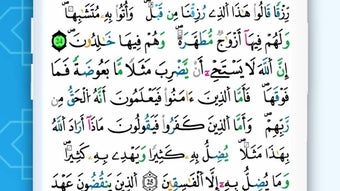 رِّزْقًا قَالُوا۟ هَٰذَا ٱلَّذِى رُزِقْنَا مِن قَبْلُ ۖ وَأُتُوا۟ بِهِۦ مُتَشَٰبِهًا ۖ
وَلَهُمْ فِيهَآ أَزْوَٰجٌ مُّطَهَّرَةٌ ۖ وَهُمْ فِيهَا خَٰلِدُونَ
إِنَّ ٱللَّهَ لَا يَسْتَحْىِۦٓ أَن يَضْرِبَ مَثَلًا مَّا بَعُوضَةً فَمَا
فَوْقَهَا ۚ فَأَمَّا ٱلَّذِينَ ءَامَنُوا۟ فَيَعْلَمُونَ أَنَّهُ ٱلْحَقُّ مِن
رَّبِّهِمْ ۖ وَأَمَّا ٱلَّذِينَ كَفَرُوا۟ فَيَقُولُونَ مَاذَآ أَرَادَ ٱللَّهُ
بِهَٰذَا مَثَلًا ۘ يُضِلُّ بِهِۦ كَثِيرًا وَيَهْدِى بِهِۦ كَثِيرًا ۚ
وَمَا يُضِلُّ بِهِۦٓ إِلَّا ٱلْفَٰسِقِينَ ٱلَّذِينَ يَنقُضُونَ عَهْدَ